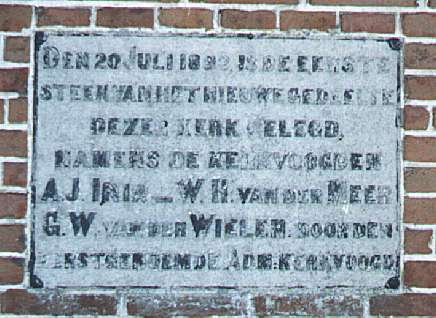 DEN 20 JULI 1893, IS DE EERSTE
STEEN VAN HET NIEUWE GEDEELTE
DEZER KERK GELEGD,
NAMENS DE KERKVOOGDEN
A.J. — W. H. VAN DER MEER
G. W. VAN DER WIELEN. DOOR DEN
EERSTGENOEMDE, ADM: KERKVOOGD